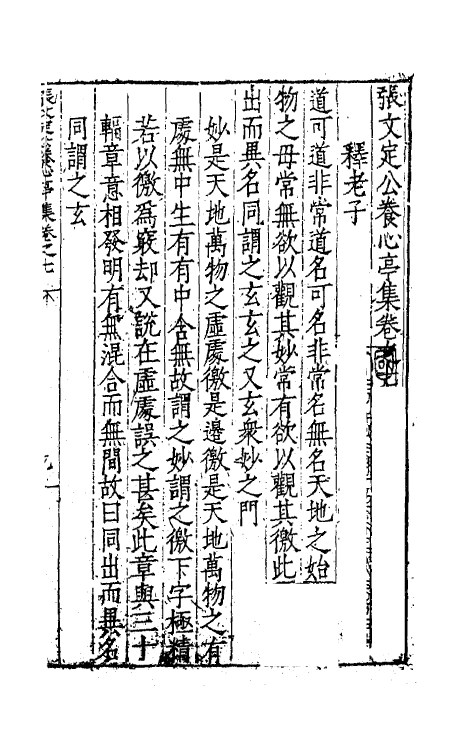 張文定公養心亭集卷
釋老子
道可道非常道名可名非常名無名天地之始
物之母常無欲以觀其妙常有欲以觀其徼此
出而異名同謂之玄玄之又玄衆妙之門
妙是天地萬物之虛處徼是邊徼是天地萬物之有
處無中生有有中含無故謂之妙謂之徼下字極精
若以徼爲竅却又說在虛處誤之甚矣此章與三十
輻章意相發明有無混合而無間故曰同出而異名
同謂之玄
張文定養心亭集卷之七